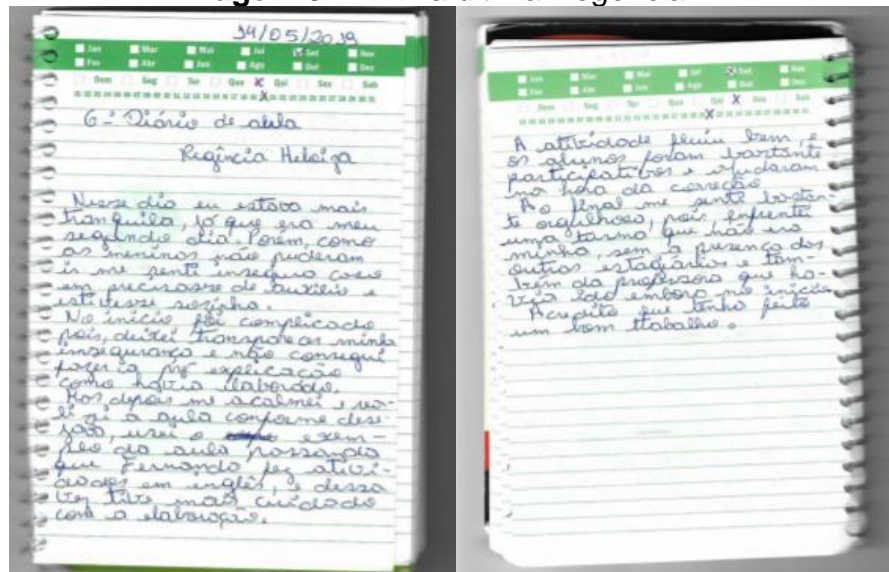 14/05/2019
Jan Mar Mai Jul Set Nov
Fev Abr Jun Ago Out Dez
Dom Seg Ter Qua Qui Sex Sab
01 02 03 04 05 06 07 08 09 10 11 12 13 14 15 16 17 18 19 20 21 22 23 24 25 26 27 28 29 30 31
6º Diário de aula
Regência Heloiza
Nesse dia eu estava mais
tranquila, já que era meu
segundo dia. Porém, como
os meninos não puderam
ir me senti insegura caso
em precisasse de auxílio e
estivesse sozinha.
No início foi complicado
pois, deixei transparecer minha
insegurança e não consegui
fazer a explicação
como havia elaborado.
Mas depois me acalmei e rea-
lizei a aula conforme dese-
jado, usei o exem-
plo da aula passada
que Fernando fez ativi-
dades em inglês, e dessa
vez tive mais cuidado
com a elaboração.
Jan Mar Mai Jul Set Nov
Fev Abr Jun Ago Out Dez
Dom Seg Ter Qua Qui Sex Sab
A atividade fluiu bem, e
os alunos foram bastante
participativos e ajudaram
na hora da correção.
Ao final me senti bastan-
te orgulhosa, pois, enfrentei
uma turma que não era
minha, sem a presença dos
outros estagiários e tam-
bém da professora que ha-
via ido embora no início.
Acredito que tenha feito
um bom trabalho.